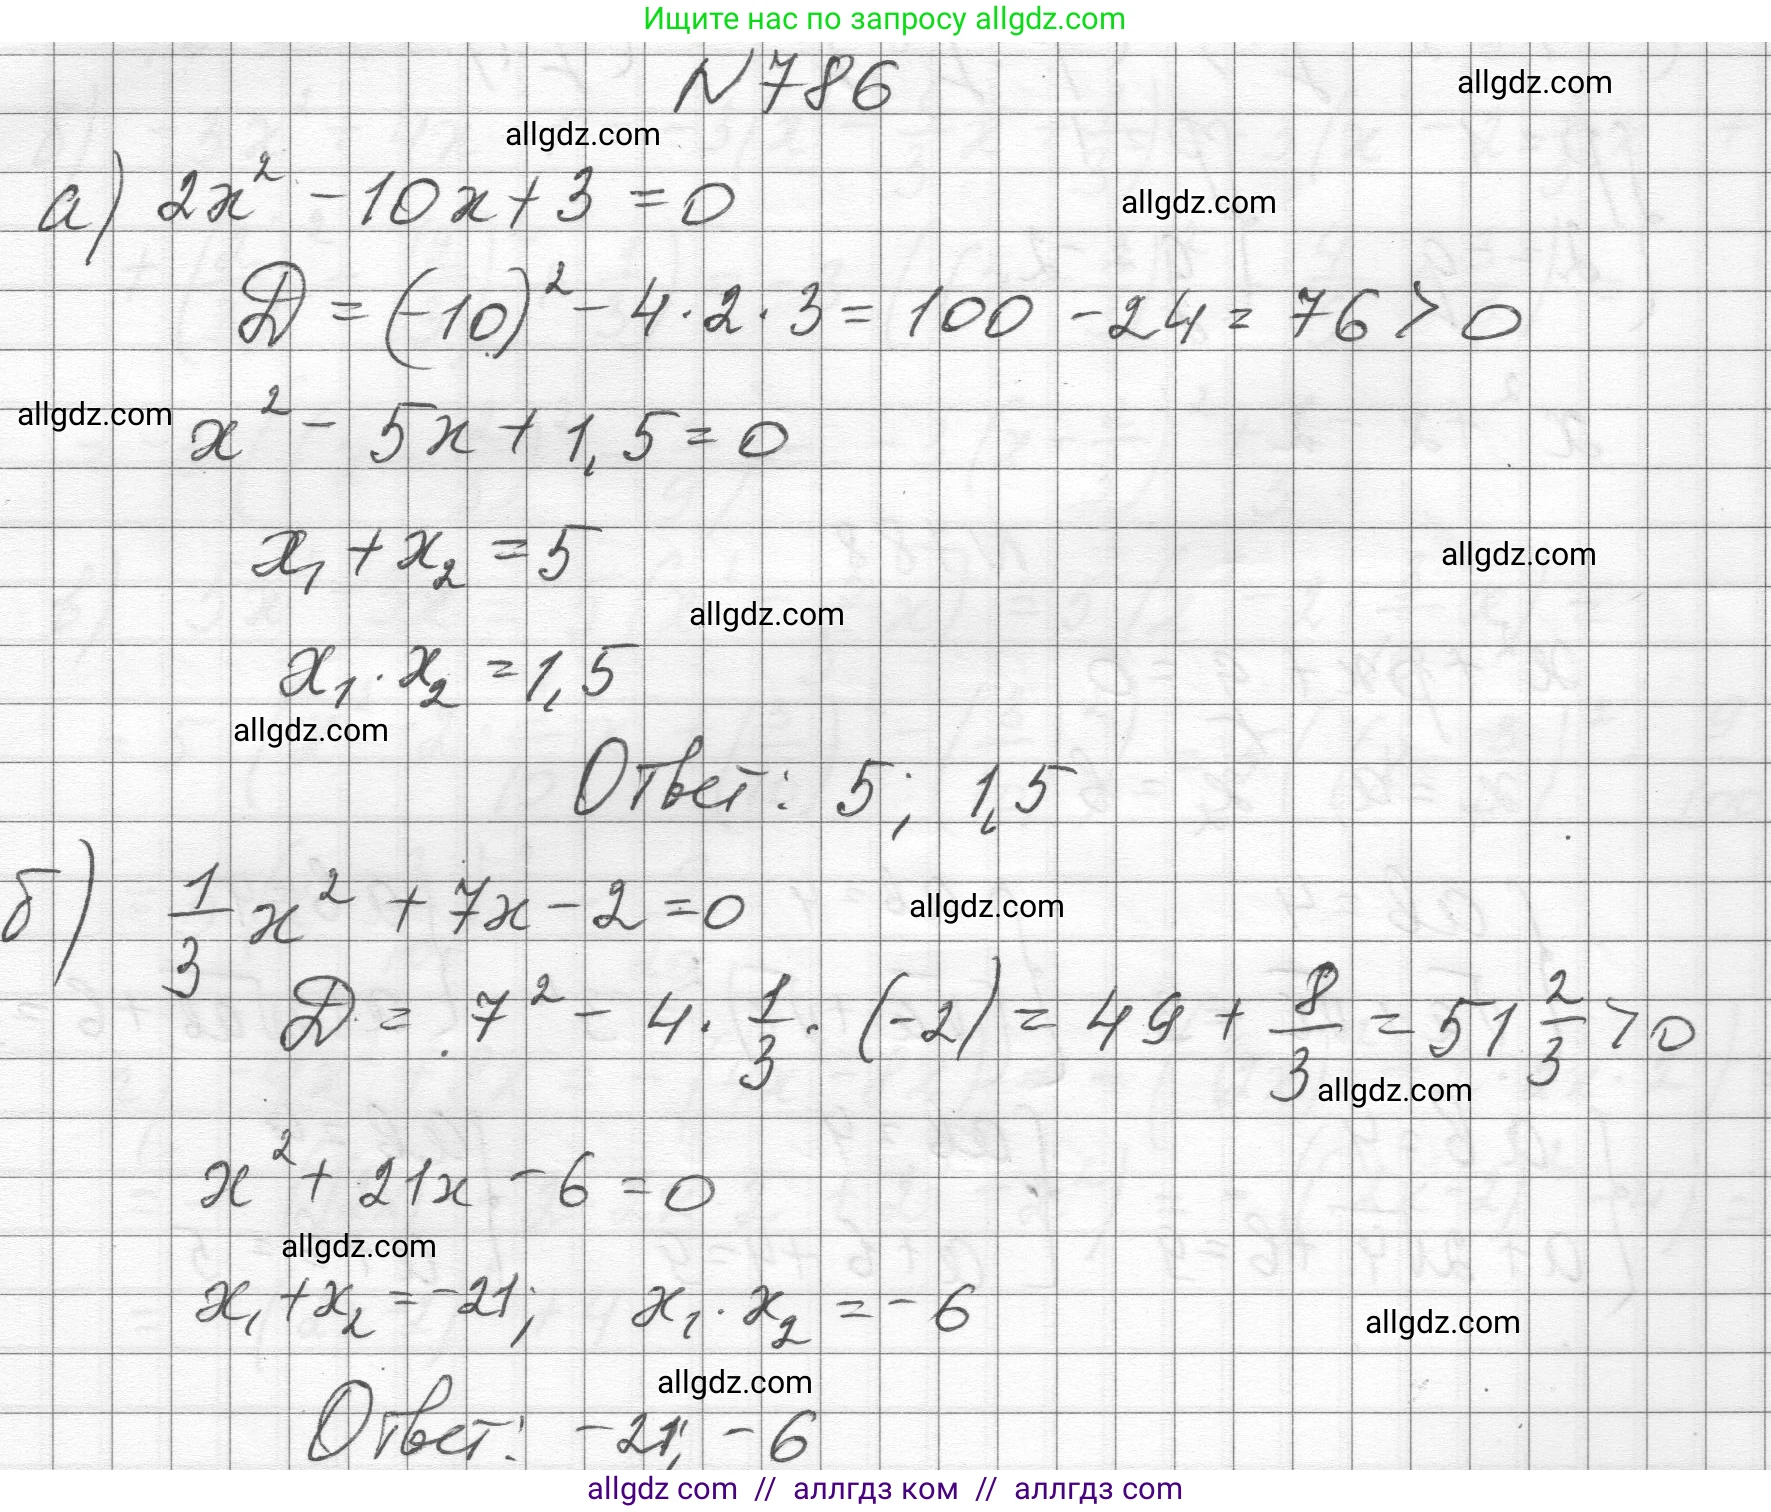 Ищите нас по запросу allgdz.com
N786
allgdz.com
allgdz.com
а) 2x² - 10x + 3 = 0
allgdz.com
D = (-10)² - 4·2·3 = 100 - 24 = 76 > 0
allgdz.com
x² - 5x + 1,5 = 0
x₁ + x₂ = 5
allgdz.com
allgdz.com
x₁ · x₂ = 1,5
allgdz.com
Ответ: 5; 1,5
б) 1/3 x² + 7x - 2 = 0
allgdz.com
D = 7² - 4 · 1/3 · (-2) = 49 + 8/3 = 51 2/3 > 0
allgdz.com
x² + 21x - 6 = 0
allgdz.com
x₁ + x₂ = -21; x₁ · x₂ = -6
allgdz.com
allgdz.com
Ответ: -21; -6
allgdz com // аллгдз ком // аллгдз com